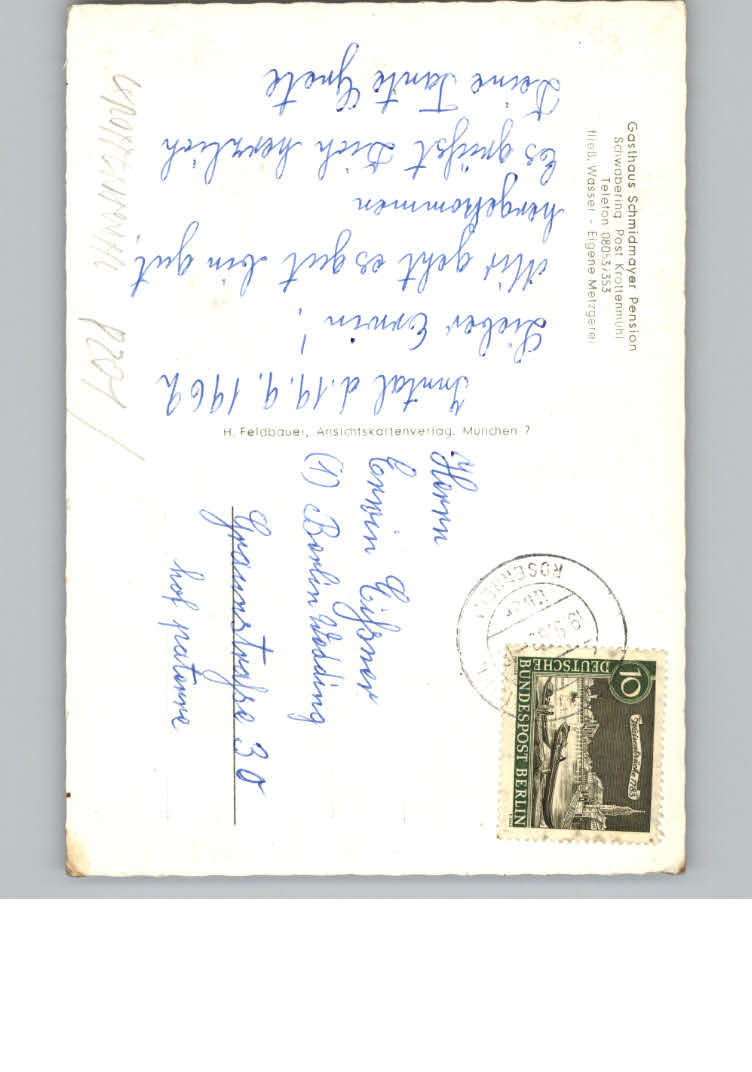 Gasthaus Schmidmayer Pension
Schwabering, Post Krottenmühl
Telefon 08053/353
fließ. Wasser - Eigene Metzgerei
Inntal d. 19. 9. 1962
Lieber Erwin!
Mir geht es gut bin gut
hergekommen
Es grüßt Dich herzlich
Deine Tante Grete
H. Feldbauer, Ansichtskartenverlag, München 7
Herrn
Erwin
(1) Berlin Wedding
Graunstraße 30
hof paterre
ROSENHEIM
10
DEUTSCHE
BUNDESPOST BERLIN
1763